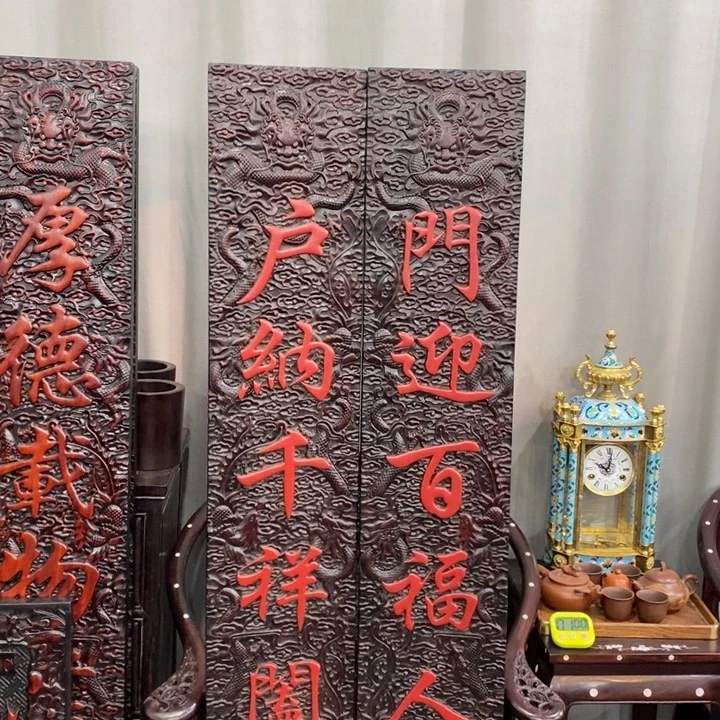 門迎百福人
戶納千祥闔
厚德載物